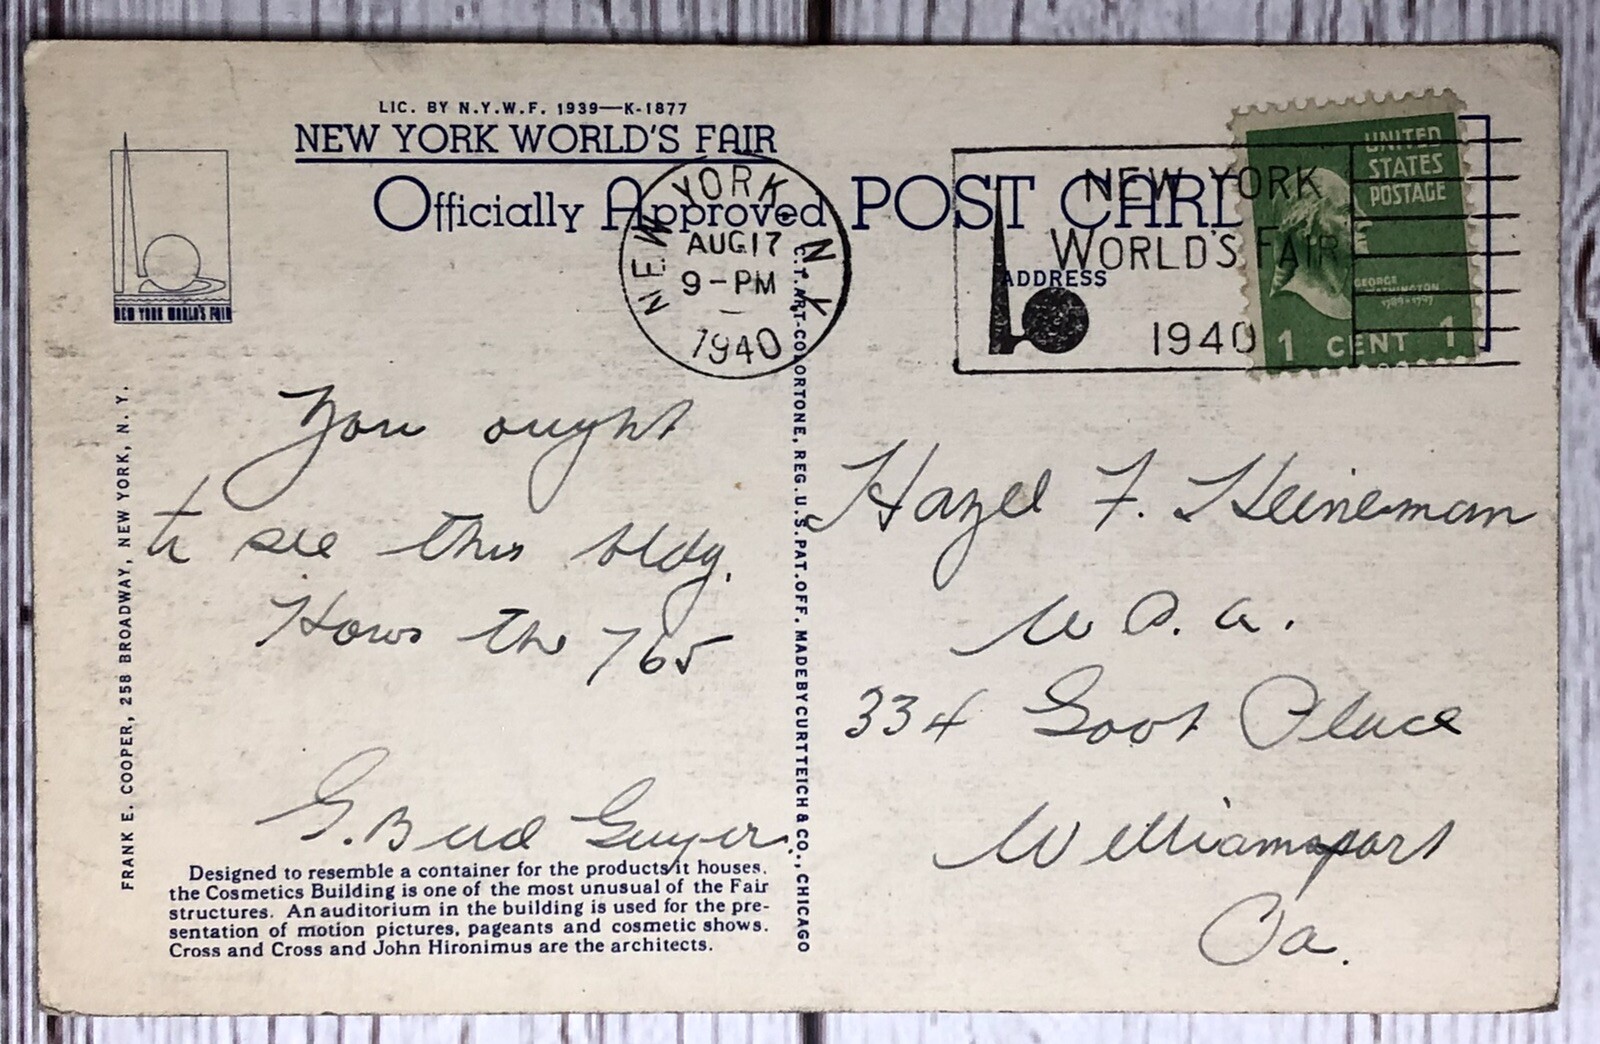 LIC. BY N.Y.W.F. 1939—K-1877
NEW YORK WORLD'S FAIR
Officially Approved POST CARD
NEW YORK WORLD'S FAIR
NEW YORK, N.Y.
AUG 17
9-PM
1940
NEW YORK
WORLD'S FAIR
1940
ADDRESS
UNITED
STATES
POSTAGE
GEORGE
WASHINGTON
1789-1797
1 CENT 1
FRANK E. COOPER, 258 BROADWAY, NEW YORK, N. Y.
You ought
to see this bldg.
Hows the 765
G. Bud Guyer.
Designed to resemble a container for the products it houses,
the Cosmetics Building is one of the most unusual of the Fair
structures. An auditorium in the building is used for the pre-
sentation of motion pictures, pageants and cosmetic shows.
Cross and Cross and John Hironimus are the architects.
C.T. ART-COLORTONE, REG. U.S. PAT. OFF. MADE BY CURT TEICH & CO., CHICAGO
Hazel F. Heineman
334 Place
Williamsport
Pa.